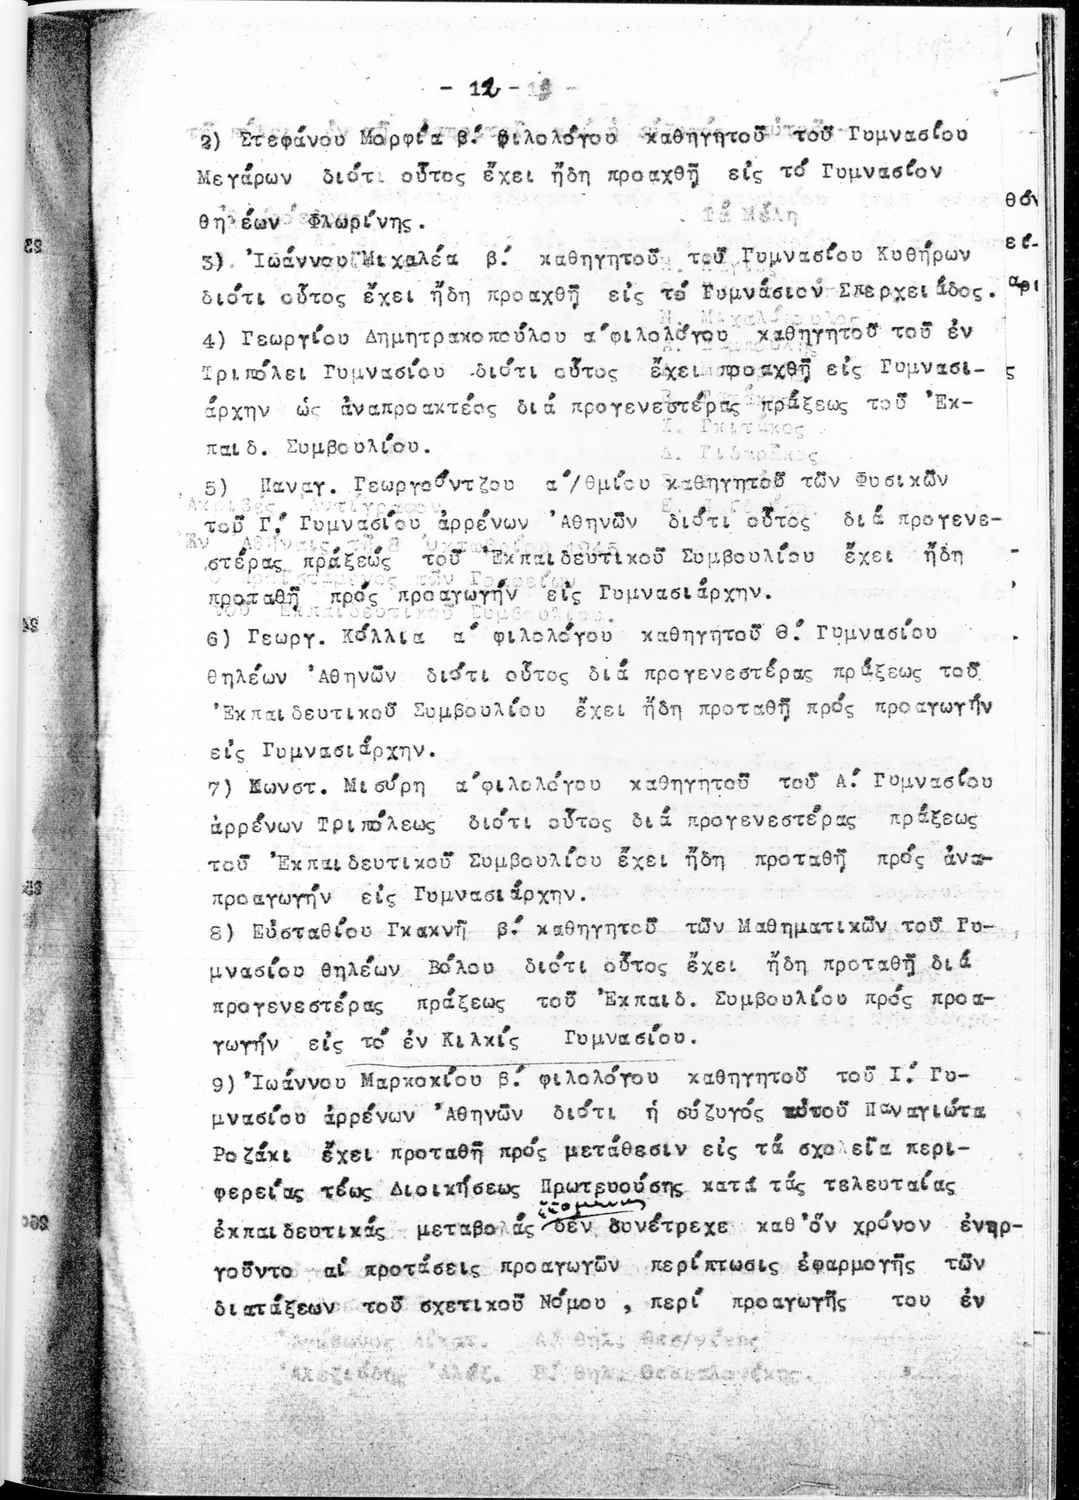 - 12 - 13 -
2) Στεφάνου Μορφία β.' φιλολόγου καθηγητοῦ τοῦ Γυμνασίου
Μεγάρων διότι οὗτος ἔχει ἤδη προαχθῆ εἰς τό Γυμνασίον
θηλέων Φλωρίνης.
3) Ἰωάννου Μιχαλέα β.' καθηγητοῦ τοῦ Γυμνασίου Κυθήρων
διότι οὗτος ἔχει ἤδη προαχθῆ εἰς τό Γυμνάσιον Σπερχειάδος.
4) Γεωργίου Δημητρακοπούλου α'φιλολόγου καθηγητοῦ τοῦ ἐν
Τριπόλει Γυμνασίου διότι οὗτος ἔχει προαχθῆ εἰς Γυμνασι-
άρχην ὡς ἀναπροακτέος διά προγενεστέρας πράξεως τοῦ Ἐκ-
παιδ. Συμβουλίου.
5) Παναγ. Γεωργούντζου α'/θμίου καθηγητοῦ τῶν Φυσικῶν
τοῦ Γ.' Γυμνασίου ἀρρένων Ἀθηνῶν διότι οὗτος διά προγενε-
στέρας πράξεώς τοῦ Ἐκπαιδευτικοῦ Συμβουλίου ἔχει ἤδη
προταθῆ πρός προαγωγήν εἰς Γυμνασιάρχην.
6) Γεωργ. Κόλλια α' φιλολόγου καθηγητοῦ Θ.' Γυμνασίου
θηλέων Ἀθηνῶν διότι οὗτος διά προγενεστέρας πράξεως τοῦ
Ἐκπαιδευτικοῦ Συμβουλίου ἔχει ἤδη προταθῆ πρός προαγωγήν
εἰς Γυμνασιάρχην.
7) Κωνστ. Μισύρη α'φιλολόγου καθηγητοῦ τοῦ Α.' Γυμνασίου
ἀρρένων Τριπόλεως διότι οὗτος διά προγενεστέρας πράξεως
τοῦ Ἐκπαιδευτικοῦ Συμβουλίου ἔχει ἤδη προταθῆ πρός ἀνα-
προαγωγήν εἰς Γυμνασιάρχην.
8) Εὐσταθίου Γκακνῆ β.' καθηγητοῦ τῶν Μαθηματικῶν τοῦ Γυ-
μνασίου θηλέων Βόλου διότι οὗτος ἔχει ἤδη προταθῆ διά
προγενεστέρας πράξεως τοῦ Ἐκπαιδ. Συμβουλίου πρός προα-
γωγήν εἰς τό ἐν Κιλκίς Γυμνασίου.
9) Ἰωάννου Μαρκοκίου β.' φιλολόγου καθηγητοῦ τοῦ Ι.' Γυ-
μνασίου ἀρρένων Ἀθηνῶν διότι ἡ σύζυγός αὐτοῦ Παναγιώτα
Ροζάκι ἔχει προταθῆ πρός μετάθεσιν εἰς τά σχολεῖα περι-
φερείας τέως Διοικήσεως Πρωτευούσης κατά τάς τελευταίας
ἐκπαιδευτικάς μεταβολάς δέν συνέτρεχε καθ'ὅν χρόνον ἐνηρ-
γοῦντο αἱ προτάσεις προαγωγῶν περίπτωσις ἐφαρμογῆς τῶν
διατάξεων τοῦ σχετικοῦ Νόμου , περί προαγωγῆς του ἐν